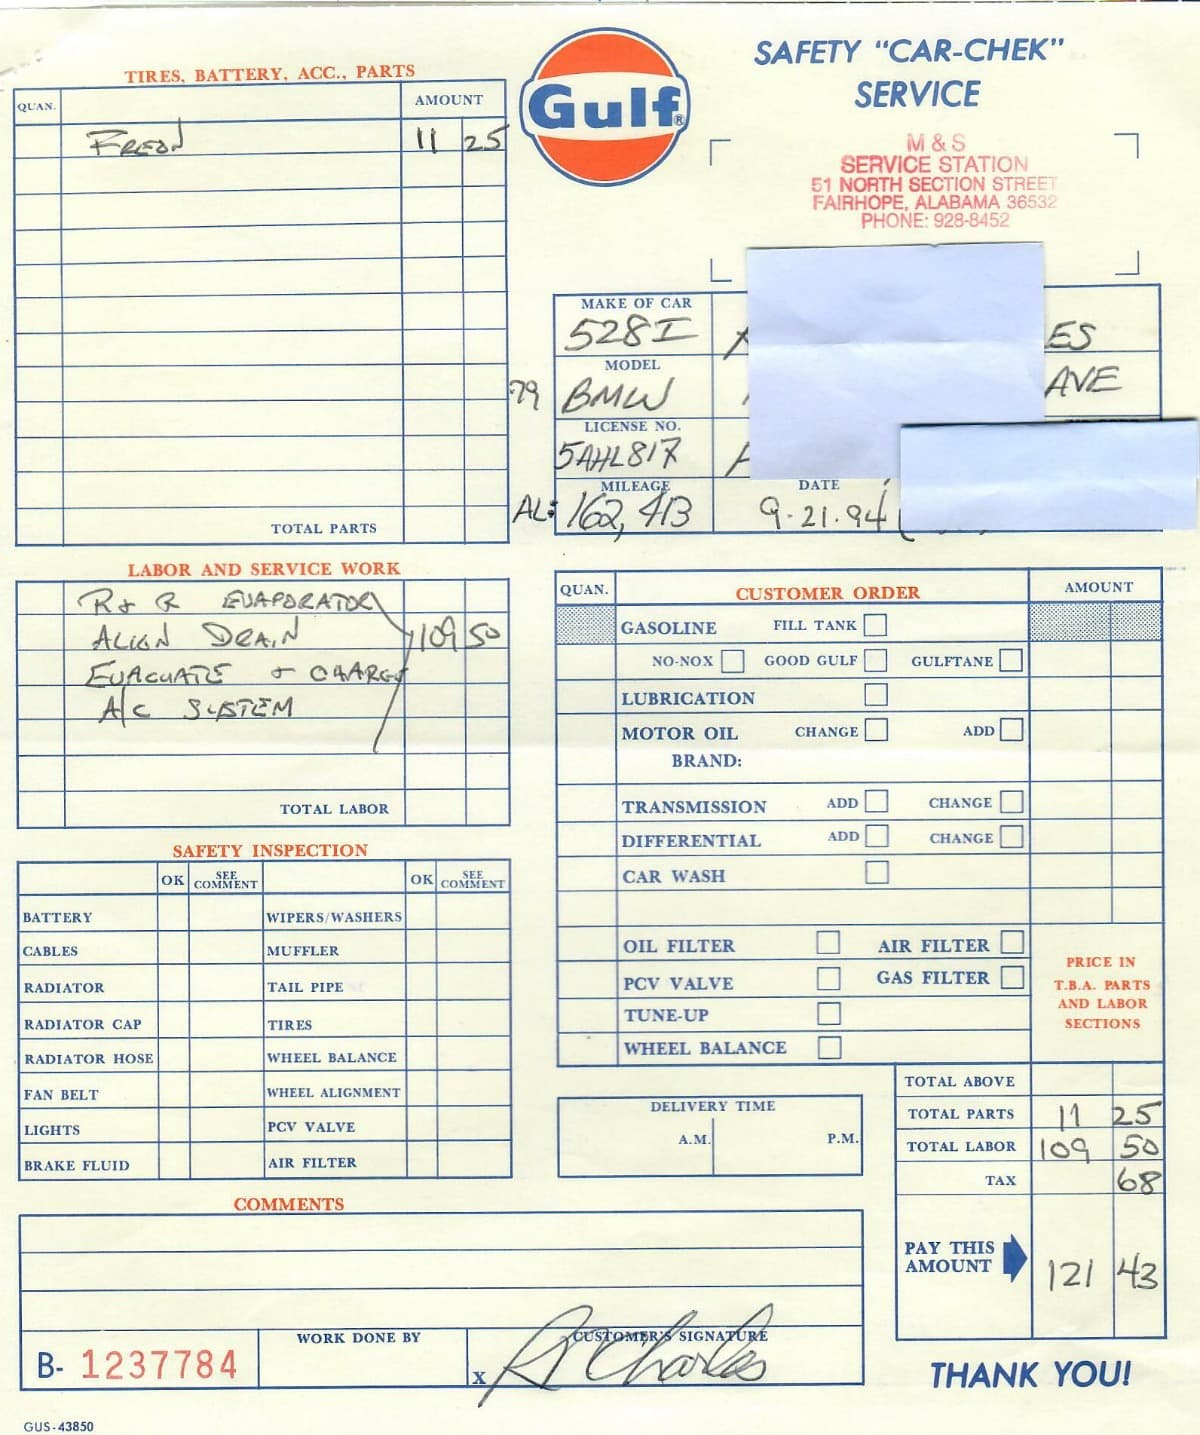 TIRES, BATTERY, ACC., PARTS
QUAN. AMOUNT
FREON 11 25
TOTAL PARTS
Gulf®
SAFETY "CAR-CHEK"
SERVICE
M & S
SERVICE STATION
51 NORTH SECTION STREET
FAIRHOPE, ALABAMA 36532
PHONE: 928-8452
MAKE OF CAR
528I ES
MODEL
79 BMW AVE
LICENSE NO.
5AHL817
MILEAGE DATE
AL: 162,413 9.21.94
LABOR AND SERVICE WORK
R & R EVAPORATOR
ALIGN DRAIN 109 50
EVACUATE & CHARGE
A/C SYSTEM
TOTAL LABOR
SAFETY INSPECTION
OK SEE COMMENT OK SEE COMMENT
BATTERY WIPERS/WASHERS
CABLES MUFFLER
RADIATOR TAIL PIPE
RADIATOR CAP TIRES
RADIATOR HOSE WHEEL BALANCE
FAN BELT WHEEL ALIGNMENT
LIGHTS PCV VALVE
BRAKE FLUID AIR FILTER
QUAN. CUSTOMER ORDER AMOUNT
GASOLINE FILL TANK
NO-NOX GOOD GULF GULFTANE
LUBRICATION
MOTOR OIL CHANGE ADD
BRAND:
TRANSMISSION ADD CHANGE
DIFFERENTIAL ADD CHANGE
CAR WASH
OIL FILTER AIR FILTER
PCV VALVE GAS FILTER
TUNE-UP
WHEEL BALANCE
PRICE IN
T.B.A. PARTS
AND LABOR
SECTIONS
DELIVERY TIME
A.M. P.M.
TOTAL ABOVE
TOTAL PARTS 11 25
TOTAL LABOR 109 50
TAX 68
PAY THIS
AMOUNT 121 43
COMMENTS
B- 1237784
WORK DONE BY
CUSTOMER'S SIGNATURE
X R Charles
THANK YOU!
GUS-43850